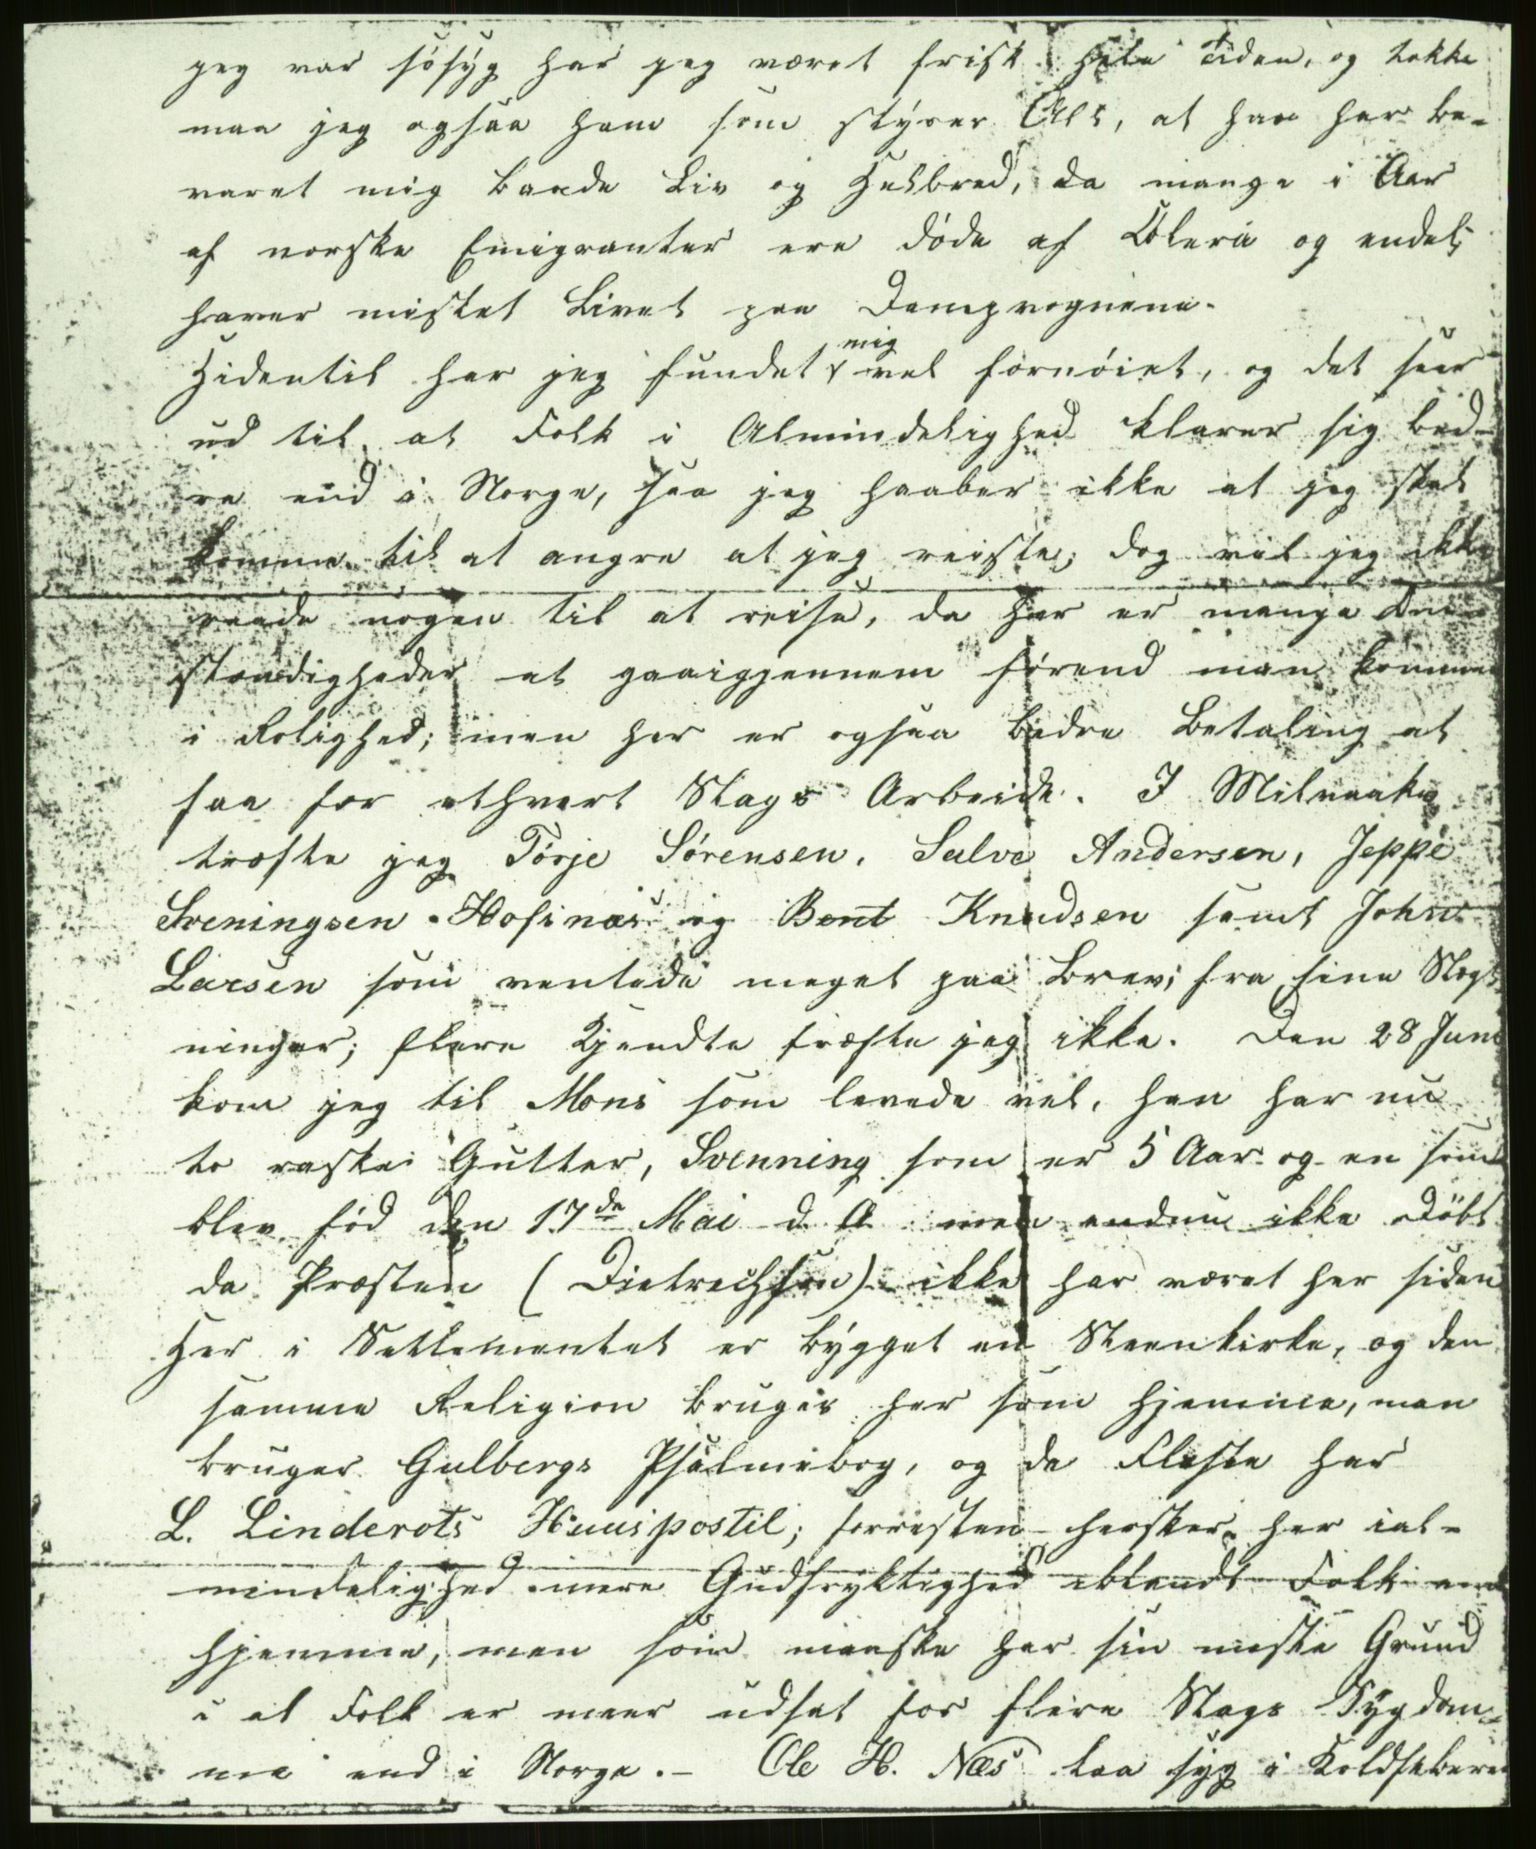 jeg var søsyg har jeg været frisk hele Tiden, og takke
maa jeg ogsaa ham som styrer Alt, at han har be-
varet mig baade Liv og Helbred, da mange i Aar
af norske Emigranter ere døde af Colera og endel
haver mistet Livet paa Dampvognene.
Hidentil har jeg fundet mig vel fornøiet, og det seer
ud til at Folk i Almindelighed klarer sig bed-
re end i Norge, saa jeg haaber ikke at jeg skal
komme til at angre at jeg reiste; dog vil jeg ikke
raade nogen til at reise, da her er mange Om-
stændigheder at gaaigjennem førend man kommer
i Rolighed; men her er ogsaa bedre Betaling at
faa for ethvert Slags Arbeide. I Milwaukie
træfte jeg Tørje Sørensen, Salve Andersen, Jeppe
Sveningsen Hofsnæs og Bent Knudsen samt John
Larsen som ventede meget paa Brev fra sine Slægt-
ninger; flere Kjendte træfte jeg ikke. Den 28 Juni
kom jeg til Mons som levede vel, han har nu
to raske Gutter, Svenning som er 5 Aar og en som
blev fød den 17de Mai d. A. men endnu ikke Døbt
da Præsten (Dietrechson) ikke har været her siden
Her i Settlementet er bygget en Steenkirke, og den
samme Religion bruges her som hjemme, man
bruger Gulbergs Psalmebog, og de Fleste har
L. Linderots Huuspostil; forresten hersker her ial-
mindelighed mere Gudfryktighed iblandt Folk end
hjemme, men som maaske har sin meste Grund
i at Folk er meer udsat for flere Slags Sygdom-
me end i Norge. – Ole H. Næs laa syg i Koldfeberen